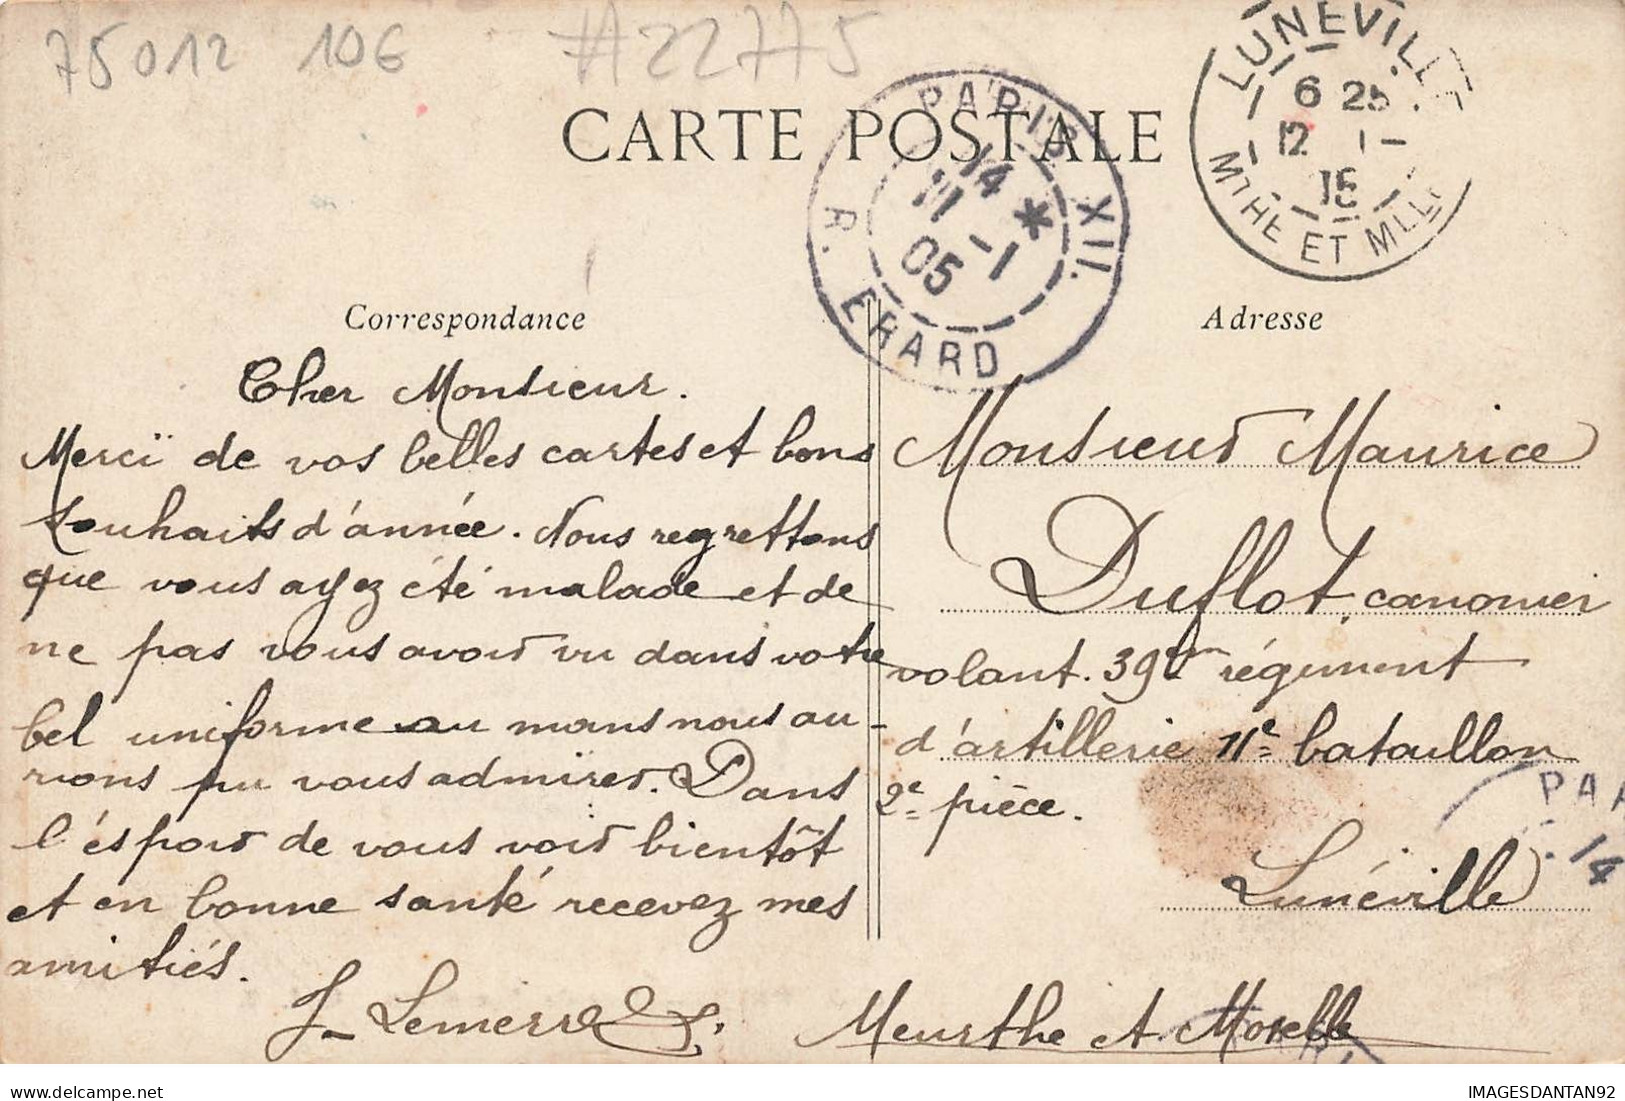 75012 106 #22775
CARTE POSTALE
PARIS XII.
14 *
11 -1
05
R. ERARD
LUNEVILLE
6 25
12 - 1
15
MTHE ET MLLE
Correspondance
Cher Monsieur.
Merci de vos belles cartes et bons
souhaits d'année. Nous regrettons
que vous ayez été malade et de
ne pas vous avoir vu dans votre
bel uniforme au moins nous au-
rions pu vous admirer. Dans
l'éspoir de vous voir bientôt
et en bonne santé recevez mes
amitiés.
J. Lemerre
Adresse
Monsieur Maurice
Duflot, canonier
volant. 39em régiment
d'artillerie 11e bataillon
2e pièce.
Lunéville
Meurthe et Moselle
PAR
14
IMAGESDANTAN92